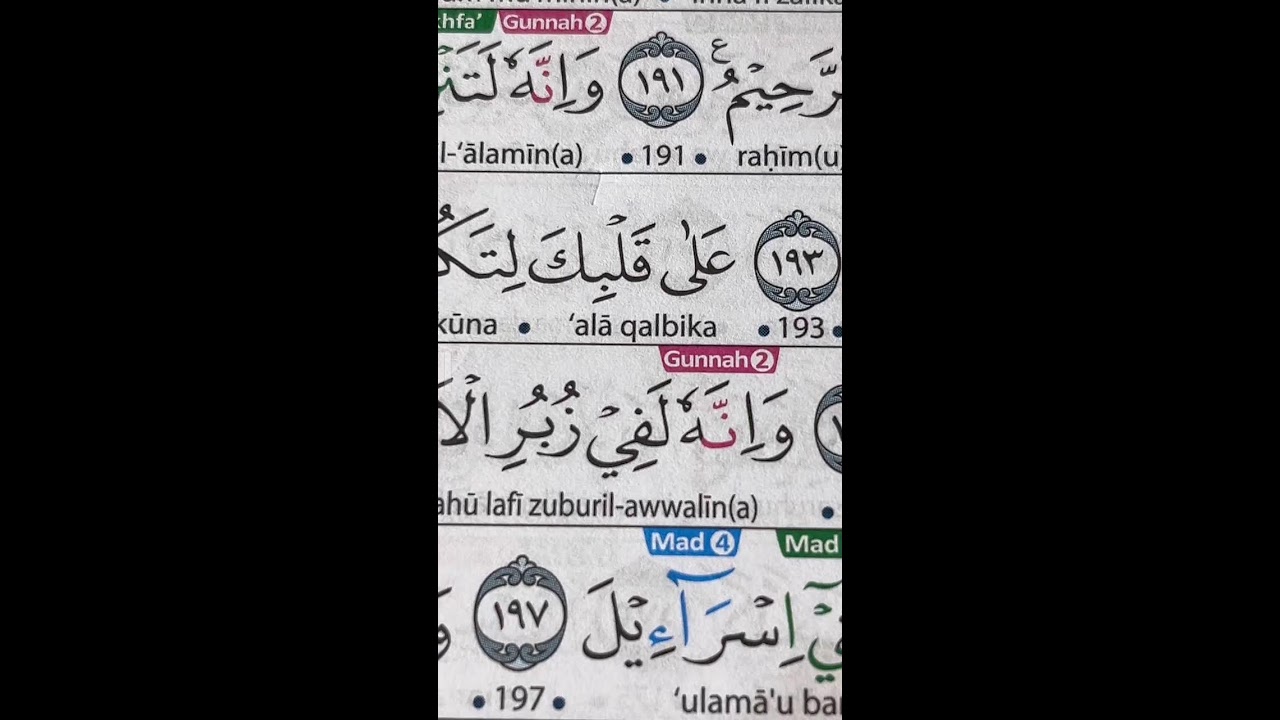 Gunnah 2
رَّحِيْمُ ࣖ ١٩١ وَاِنَّهٗ
l-‘ālamīn(a) • 191 • raḥīm(u)
١٩٣ عَلٰى قَلْبِكَ
kūna • ‘alā qalbika • 193 •
Gunnah 2
وَاِنَّهٗ لَفِيْ زُبُرِ
ahū lafī zuburil-awwalīn(a) •
Mad 4 Mad
اِسْرَاۤءِيْلَ ١٩٧
• 197 • ‘ulamā'u ba